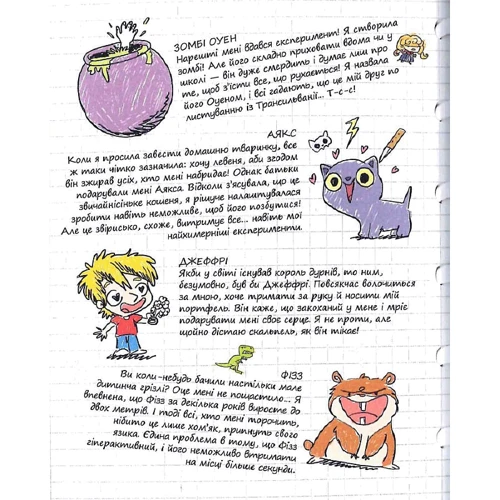 ЗОМБІ ОУЕН
Нарешті мені вдався експеримент! Я створила
зомбі! Але його складно приховати вдома чи у
школі — він дуже смердить і думає лиш про
те, щоб з'їсти все, що рухається! Я назвала
його Оуеном, і всі гадають, що це мій друг по
листуванню із Трансильванії... Т-с-с!
АЯКС
Коли я просила завести домашню тваринку, все
ж таки чітко зазначила: хочу левеня, аби згодом
він зжирав усіх, хто мені набридає! Однак батьки
подарували мені Аякса. Відколи з'ясувала, що це
звичайнісіньке кошеня, я рішуче налаштувалася
зробити навіть неможливе, щоб його позбутися!
Але це звірисько, схоже, витримує все... навіть мої
найхимерніші експерименти.
ДЖЕФФРІ
Якби у світі існував король дурнів, то ним,
безумовно, був би Джеффрі. Повсякчас волочиться
за мною, хоче тримати за руку й носити мій
портфель. Він каже, що закоханий у мене і мріє
подарувати мені своє серце. Я не проти, але
щойно дістаю скальпель, як він тікає!
ФІЗЗ
Ви коли-небудь бачили настільки мале
дитинча грізлі? Оце мені не пощастило... Я
впевнена, що Фізз за декілька років виросте до
двох метрів. І тоді всі, хто мені торочить,
нібито це лише хом'як, прикнуть свого
язика. Єдина проблема в тому, що Фізз
гіперактивний, і його неможливо втримати
на місці більше секунди.